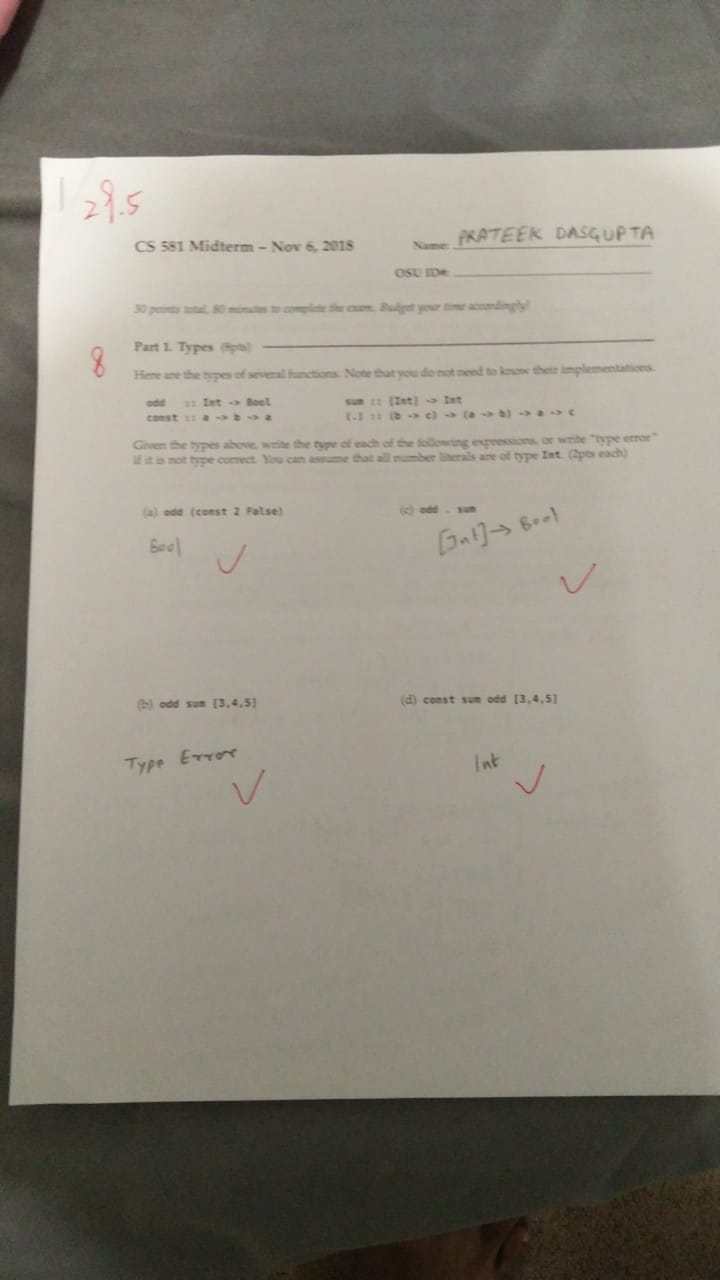 29.5
CS 581 Midterm – Nov 6, 2018
Name: PRATEEK DASGUPTA
OSU ID#:
30 points total, 80 minutes to complete the exam. Budget your time accordingly!
8
Part 1. Types (8pts)
Here are the types of several functions. Note that you do not need to know their implementations.
odd :: Int -> Bool
sum :: [Int] -> Int
const :: a -> b -> a
(.) :: (b -> c) -> (a -> b) -> a -> c
Given the types above, write the type of each of the following expressions, or write "type error"
if it is not type correct. You can assume that all number literals are of type Int. (2pts each)
(a) odd (const 2 False)
Bool
(c) odd . sum
[Int] → Bool
(b) odd sum [3,4,5]
Type Error
(d) const sum odd [3,4,5]
Int